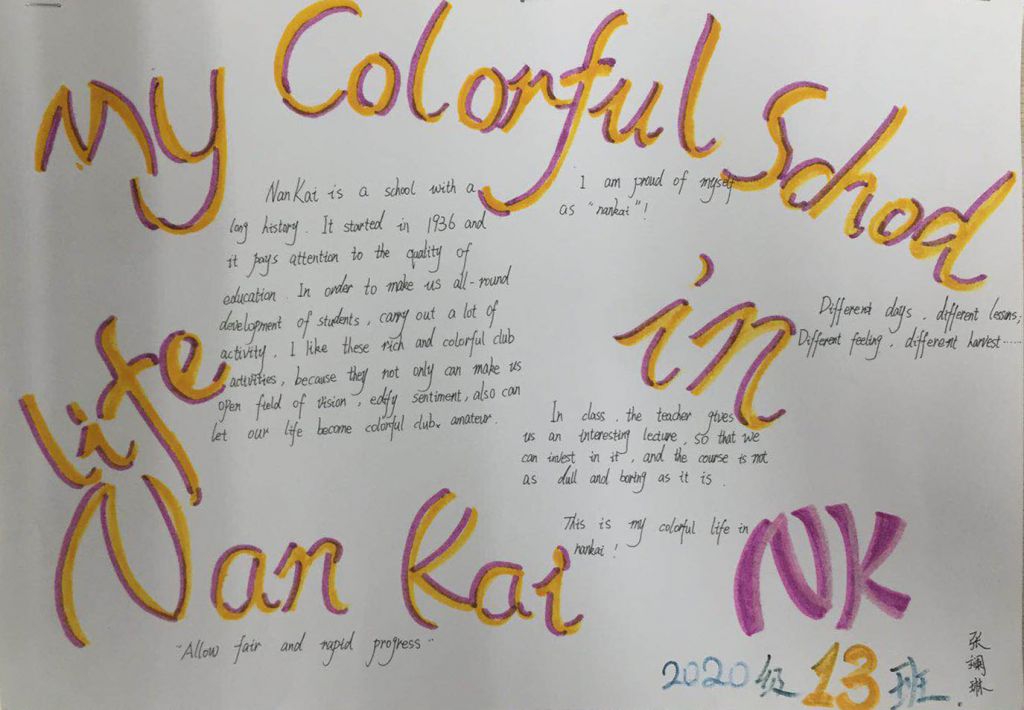 My Colorful School
life in
Nan Kai
NanKai is a school with a
long history. It started in 1936 and
it pays attention to the quality of
education. In order to make us all-round
development of students, carry out a lot of
activity. I like these rich and colorful club
activities, because they not only can make us
open field of vision, edify sentiment, also can
let our life become colorful club. amateur.
I am proud of myself
as "nankai"!
Different days. different lessons;
Different feeling. different harvest……
In class. the teacher gives
us an interesting lecture, so that we
can invest in it, and the course is not
as dull and boring as it is.
This is my colorful life in
nankai!
"Allow fair and rapid progress"
NK
2020级 13班.
张
斓
琳